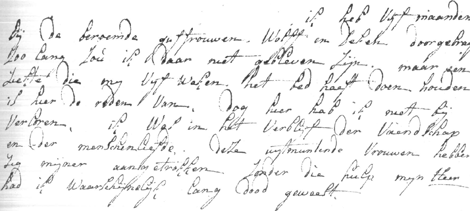 ik heb Vijf maanden
bij de beroemde juffrouwen. Wolff en Deken doorgebragt
zoo lang zou ik daar niet gebleven zijn. maar een
ziekte die my Vijf Weken. het bed heeft doen houden
is hier de reden Van. dog hier heb ik niet bij
Verloren. ik Was in het Verblijf der Vriendschap
en der menschenliefde. deze uijtmuntende Vrouwen hebben
zig mijner aangetrokken zonder die hulp mijn Heer
had ik Waarschijnelijk lang dood geweest.